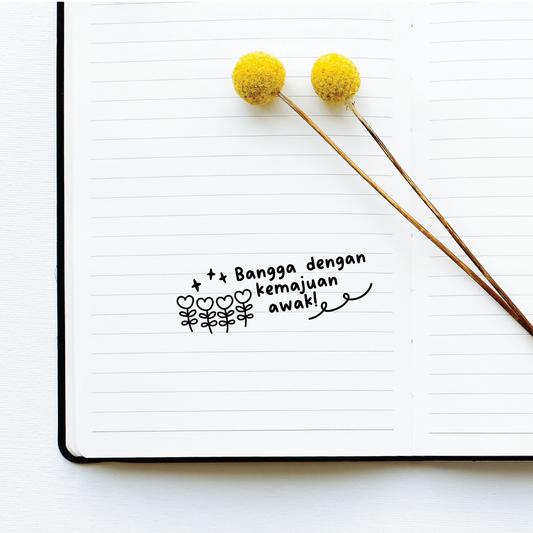 Bangga dengan
kemajuan
awak!